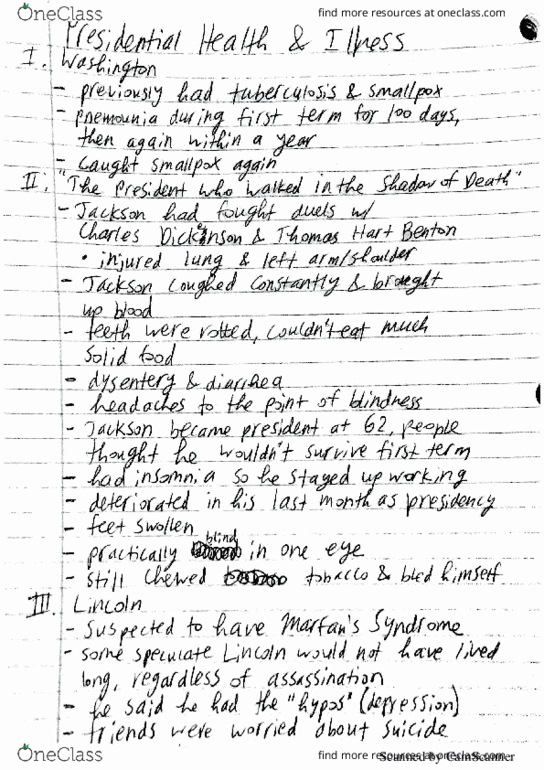 OneClass
find more resources at oneclass.com
Presidential Health & Illness
I. Washington
- previously had tuberculosis & smallpox
- pnemounia during first term for 100 days,
then again within a year
- caught smallpox again
II. "The President who walked in the Shadow of Death"
- Jackson had fought duels w/
Charles Dickinson & Thomas Hart Benton
• injured lung & left arm/shoulder
- Jackson coughed constantly & brought
up blood
- teeth were rotted, couldn't eat much
solid food
- dysentery & diarrhea
- headaches to the point of blindness
- Jackson became president at 62, people
thought he wouldn't survive first term
- had insomnia so he stayed up working
- deteriorated in his last month as presidency
- feet swollen
- practically blind in one eye
- still chewed tobacco & bled himself
III. Lincoln
- suspected to have Marfan's Syndrome
- some speculate Lincoln would not have lived
long, regardless of assassination
- he said he had the "hypos" (depression)
- friends were worried about suicide
OneClass
find more resources at oneclass.com
Scanned by CamScanner